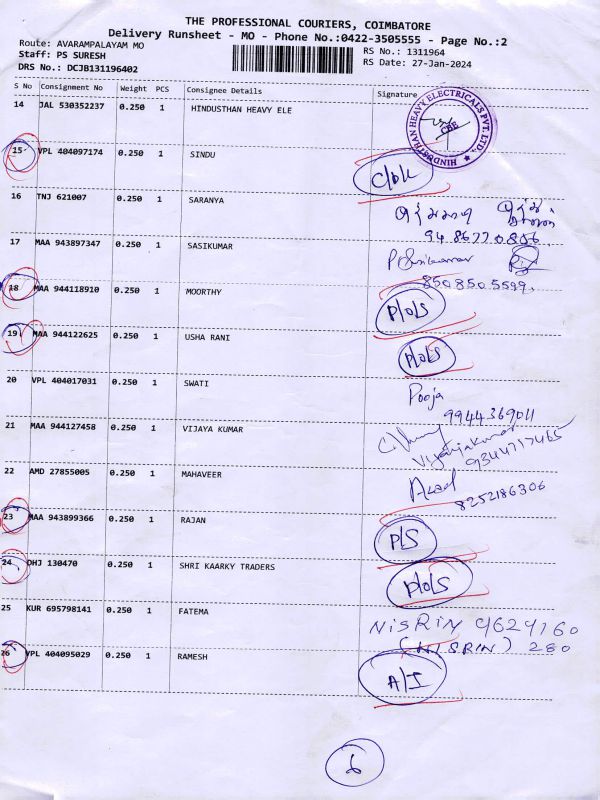 THE PROFESSIONAL COURIERS, COIMBATORE
Delivery Runsheet - MO - Phone No.:0422-3505555 - Page No.:2
Route: AVARAMPALAYAM MO
RS No.: 1311964
Staff: PS SURESH
RS Date: 27-Jan-2024
DRS No.: DCJB131196402
S No Consignment No Weight PCS Consignee Details Signature
14 JAL 530352237 0.250 1 HINDUSTHAN HEAVY ELE
HINDUSTHAN HEAVY ELECTRICALS PVT. LTD. CBE
15 VPL 404097174 0.250 1 SINDU
16 TNJ 621007 0.250 1 SARANYA
17 MAA 943897347 0.250 1 SASIKUMAR
8508505599.
18 MAA 944118910 0.250 1 MOORTHY P/O/S
19 MAA 944122625 0.250 1 USHA RANI P/O/S
20 VPL 404017031 0.250 1 SWATI Pooja
9944369011
21 MAA 944127458 0.250 1 VIJAYA KUMAR Vijayakumar
9344717465
22 AMD 27855005 0.250 1 MAHAVEER Azad
8252186306
23 MAA 943899366 0.250 1 RAJAN P/S
24 DHJ 130470 0.250 1 SHRI KAARKY TRADERS P/O/S
25 KUR 695798141 0.250 1 FATEMA NISRIN 9629160
(NISRIN) 280
26 VPL 404095029 0.250 1 RAMESH A/I
6